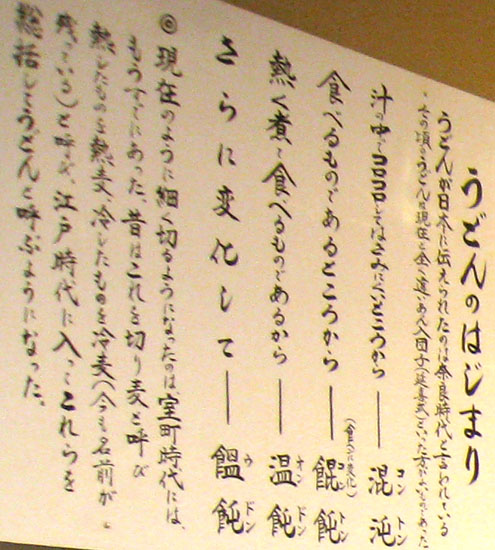 うどんのはじまり
うどんが日本に伝えられたのは奈良時代と言われている
その頃のうどんは現在と全く違いあん入団子(延喜式)といった方がいいものであった
汁の中でコロコロしてはさみにくいところから── 混沌 コントン
食べるものであるところから── 餛飩 コントン (食へんに変化)
熱く煮て食べるものであるから── 温飩 オンドン
さらに変化して── 饂飩 ウドン
◎現在のように細く切るようになったのは室町時代には、
もうすでにあった、昔はこれを切り麦と呼び
熱したものを熱麦、冷したものを冷麦(今も名前が
残っている)と呼び、江戸時代に入ってこれらを
総括してうどんと呼ぶようになった。